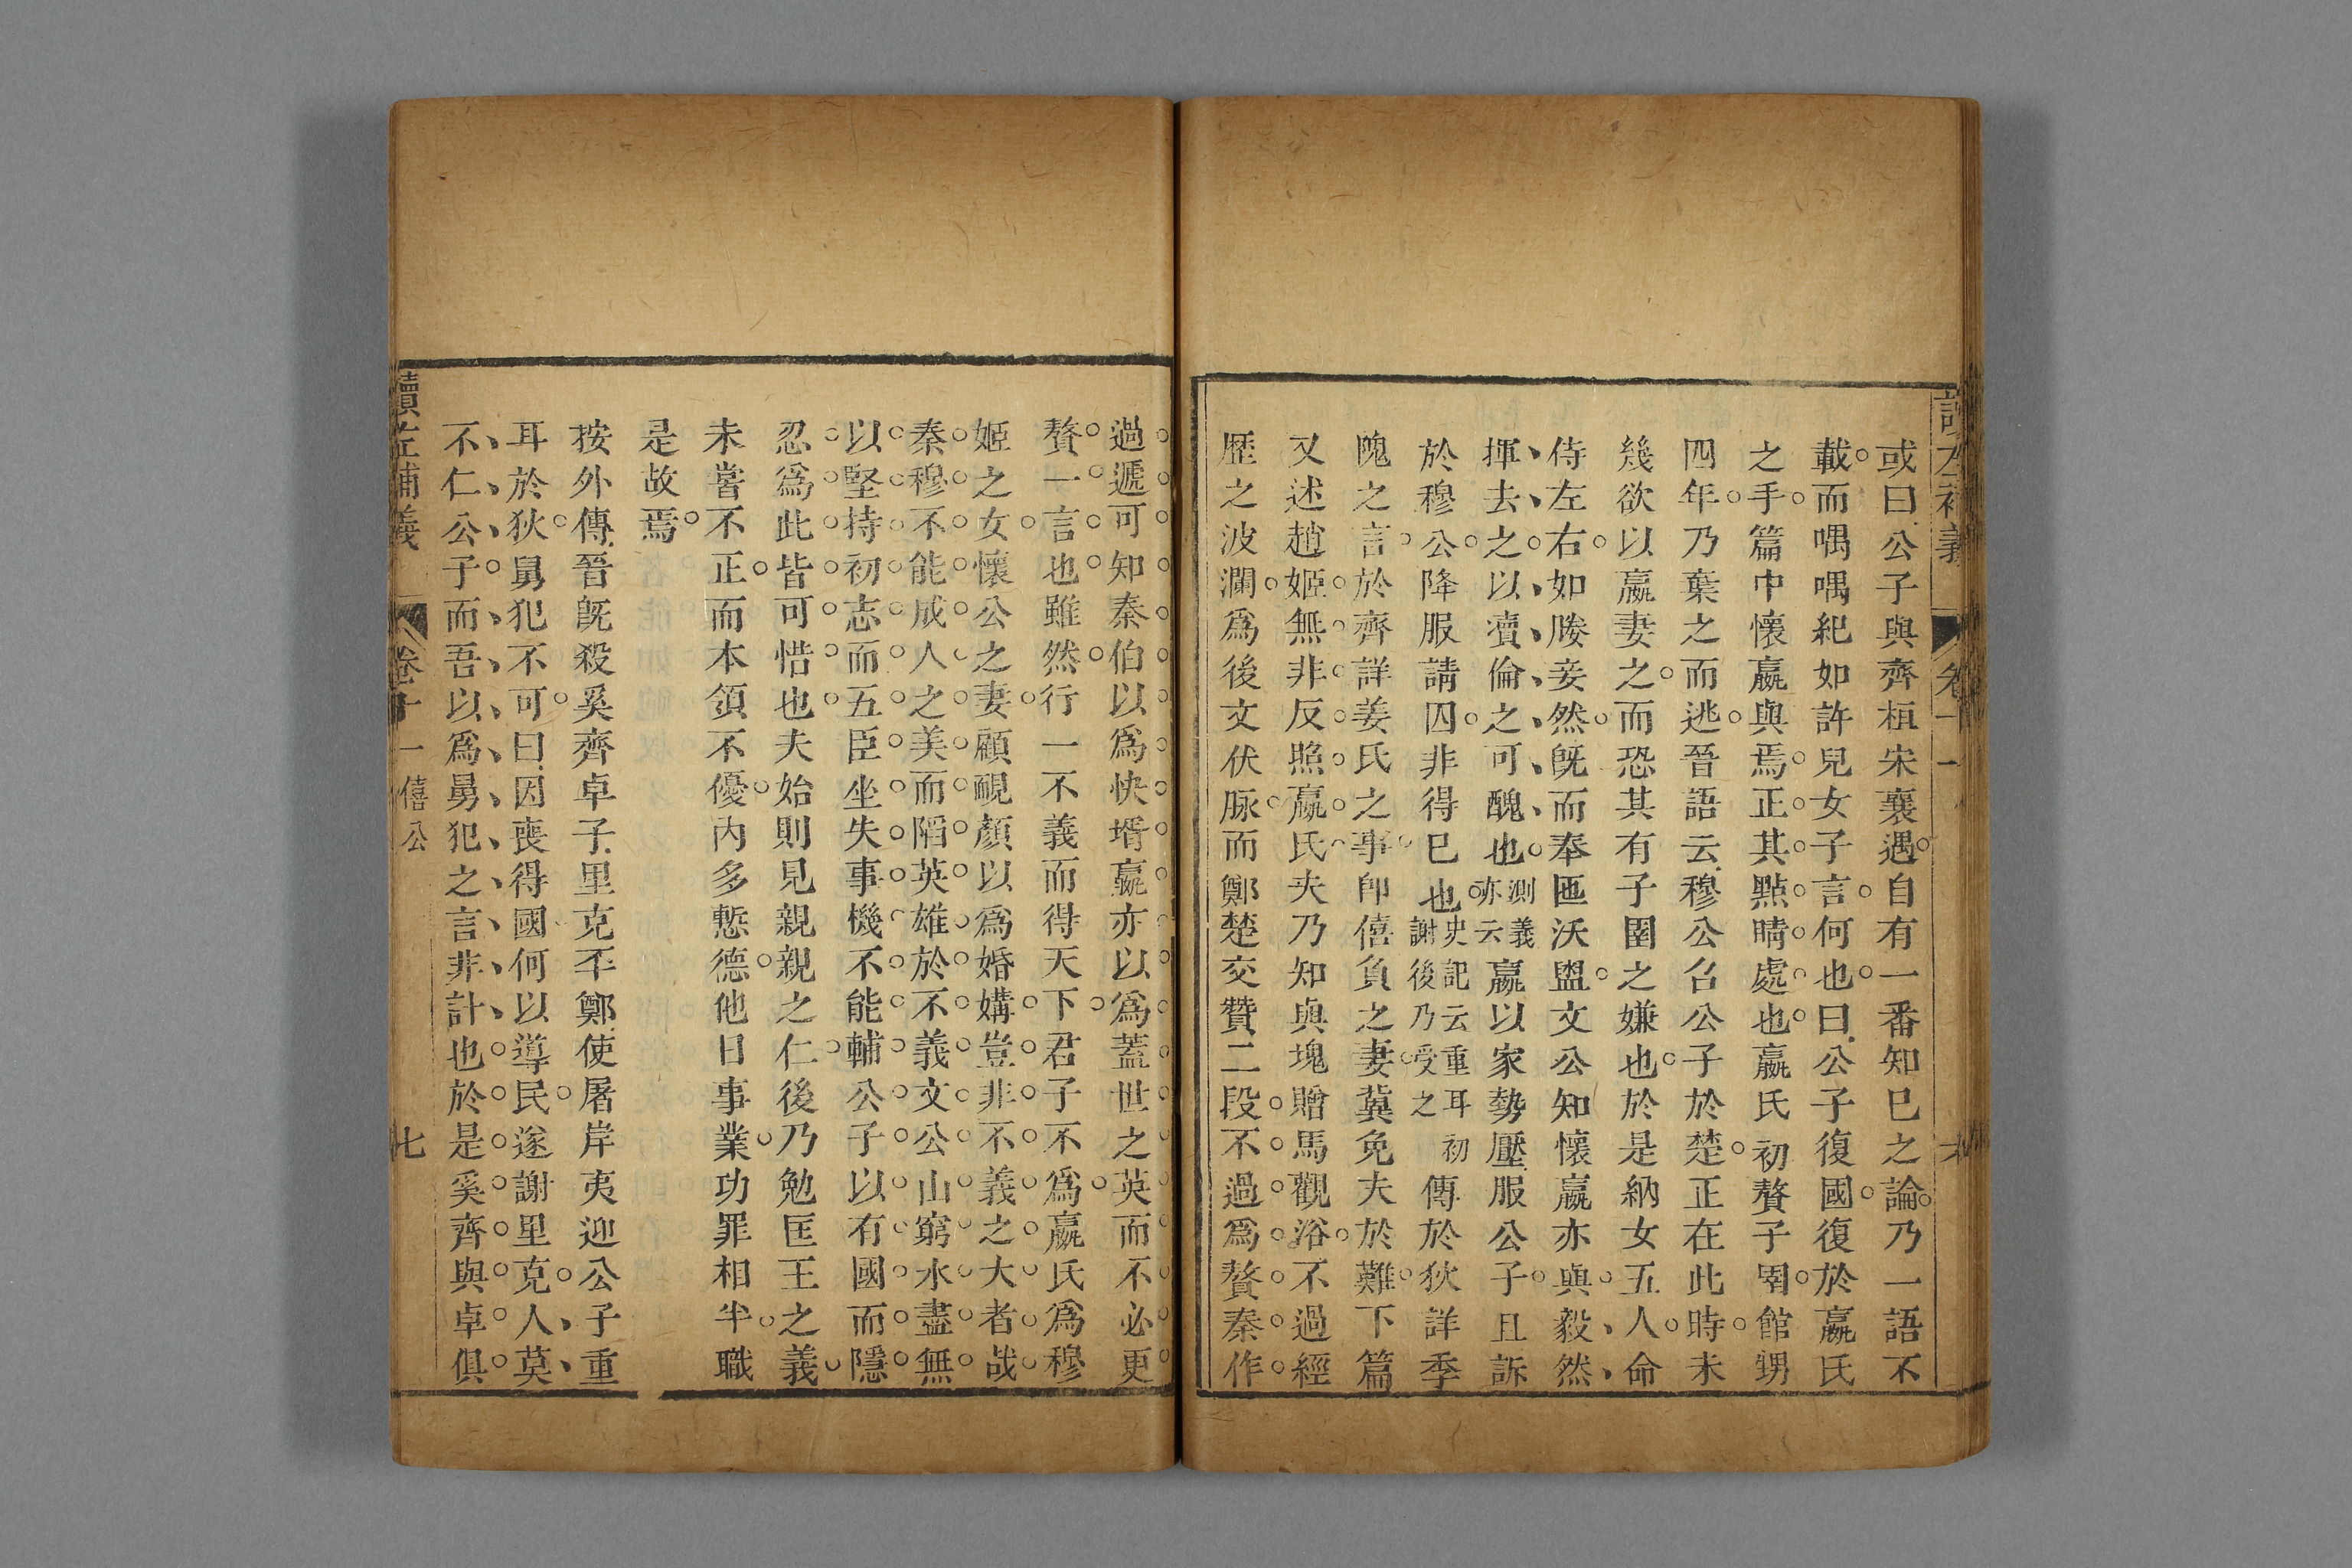 或曰公子與齊桓宋襄遇自有一番知巳之論乃一語不
載而喁喁紀如許兒女子言何也曰公子復國復於嬴氏
之手篇中懷嬴與焉正其點睛處也嬴氏初贅子圉館甥
四年乃葉之而逃晉語云穆公召公子於楚正在此時未
幾欲以嬴妻之而恐其有子圉之嫌也於是納女五人命
侍左右如媵妾然旣而奉匜沃盥文公知懷嬴亦與毅然
揮去之以瀆倫之可醜也測義亦云嬴以家勢壓服公子且訴
於穆公降服請囚非得巳也史記云重耳初謝後乃受之傳於狄詳季
隗之言於齊詳姜氏之事卽僖負之妻冀免夫於難下篇
又述趙姬無非反照嬴氏夫乃知與塊贈馬觀浴不過經
歷之波瀾爲後文伏脉而鄭楚交贊二段不過爲贅秦作
過遞可知秦伯以爲快壻嬴亦以爲蓋世之英而不必更
贅一言也雖然行一不義而得天下君子不爲嬴氏爲穆
姬之女懷公之妻顧靦顏以爲婚媾豈非不義之大者哉
秦穆不能成人之美而䧟英雄於不義文公山窮水盡無
以堅持初志而五臣坐失事機不能輔公子以有國而隱
忍爲此皆可惜也夫始則見親親之仁後乃勉匡王之義
未嘗不正而本領不優內多慙德他日事業功罪相半職
是故焉
按外傳晉旣殺奚齊卓子里克丕鄭使屠岸夷迎公子重
耳於狄舅犯不可曰因喪得國何以導民遂謝里克人莫
不仁公子而吾以爲舅犯之言非計也於是奚齊與卓俱
讀左補義 卷十一 僖公 七